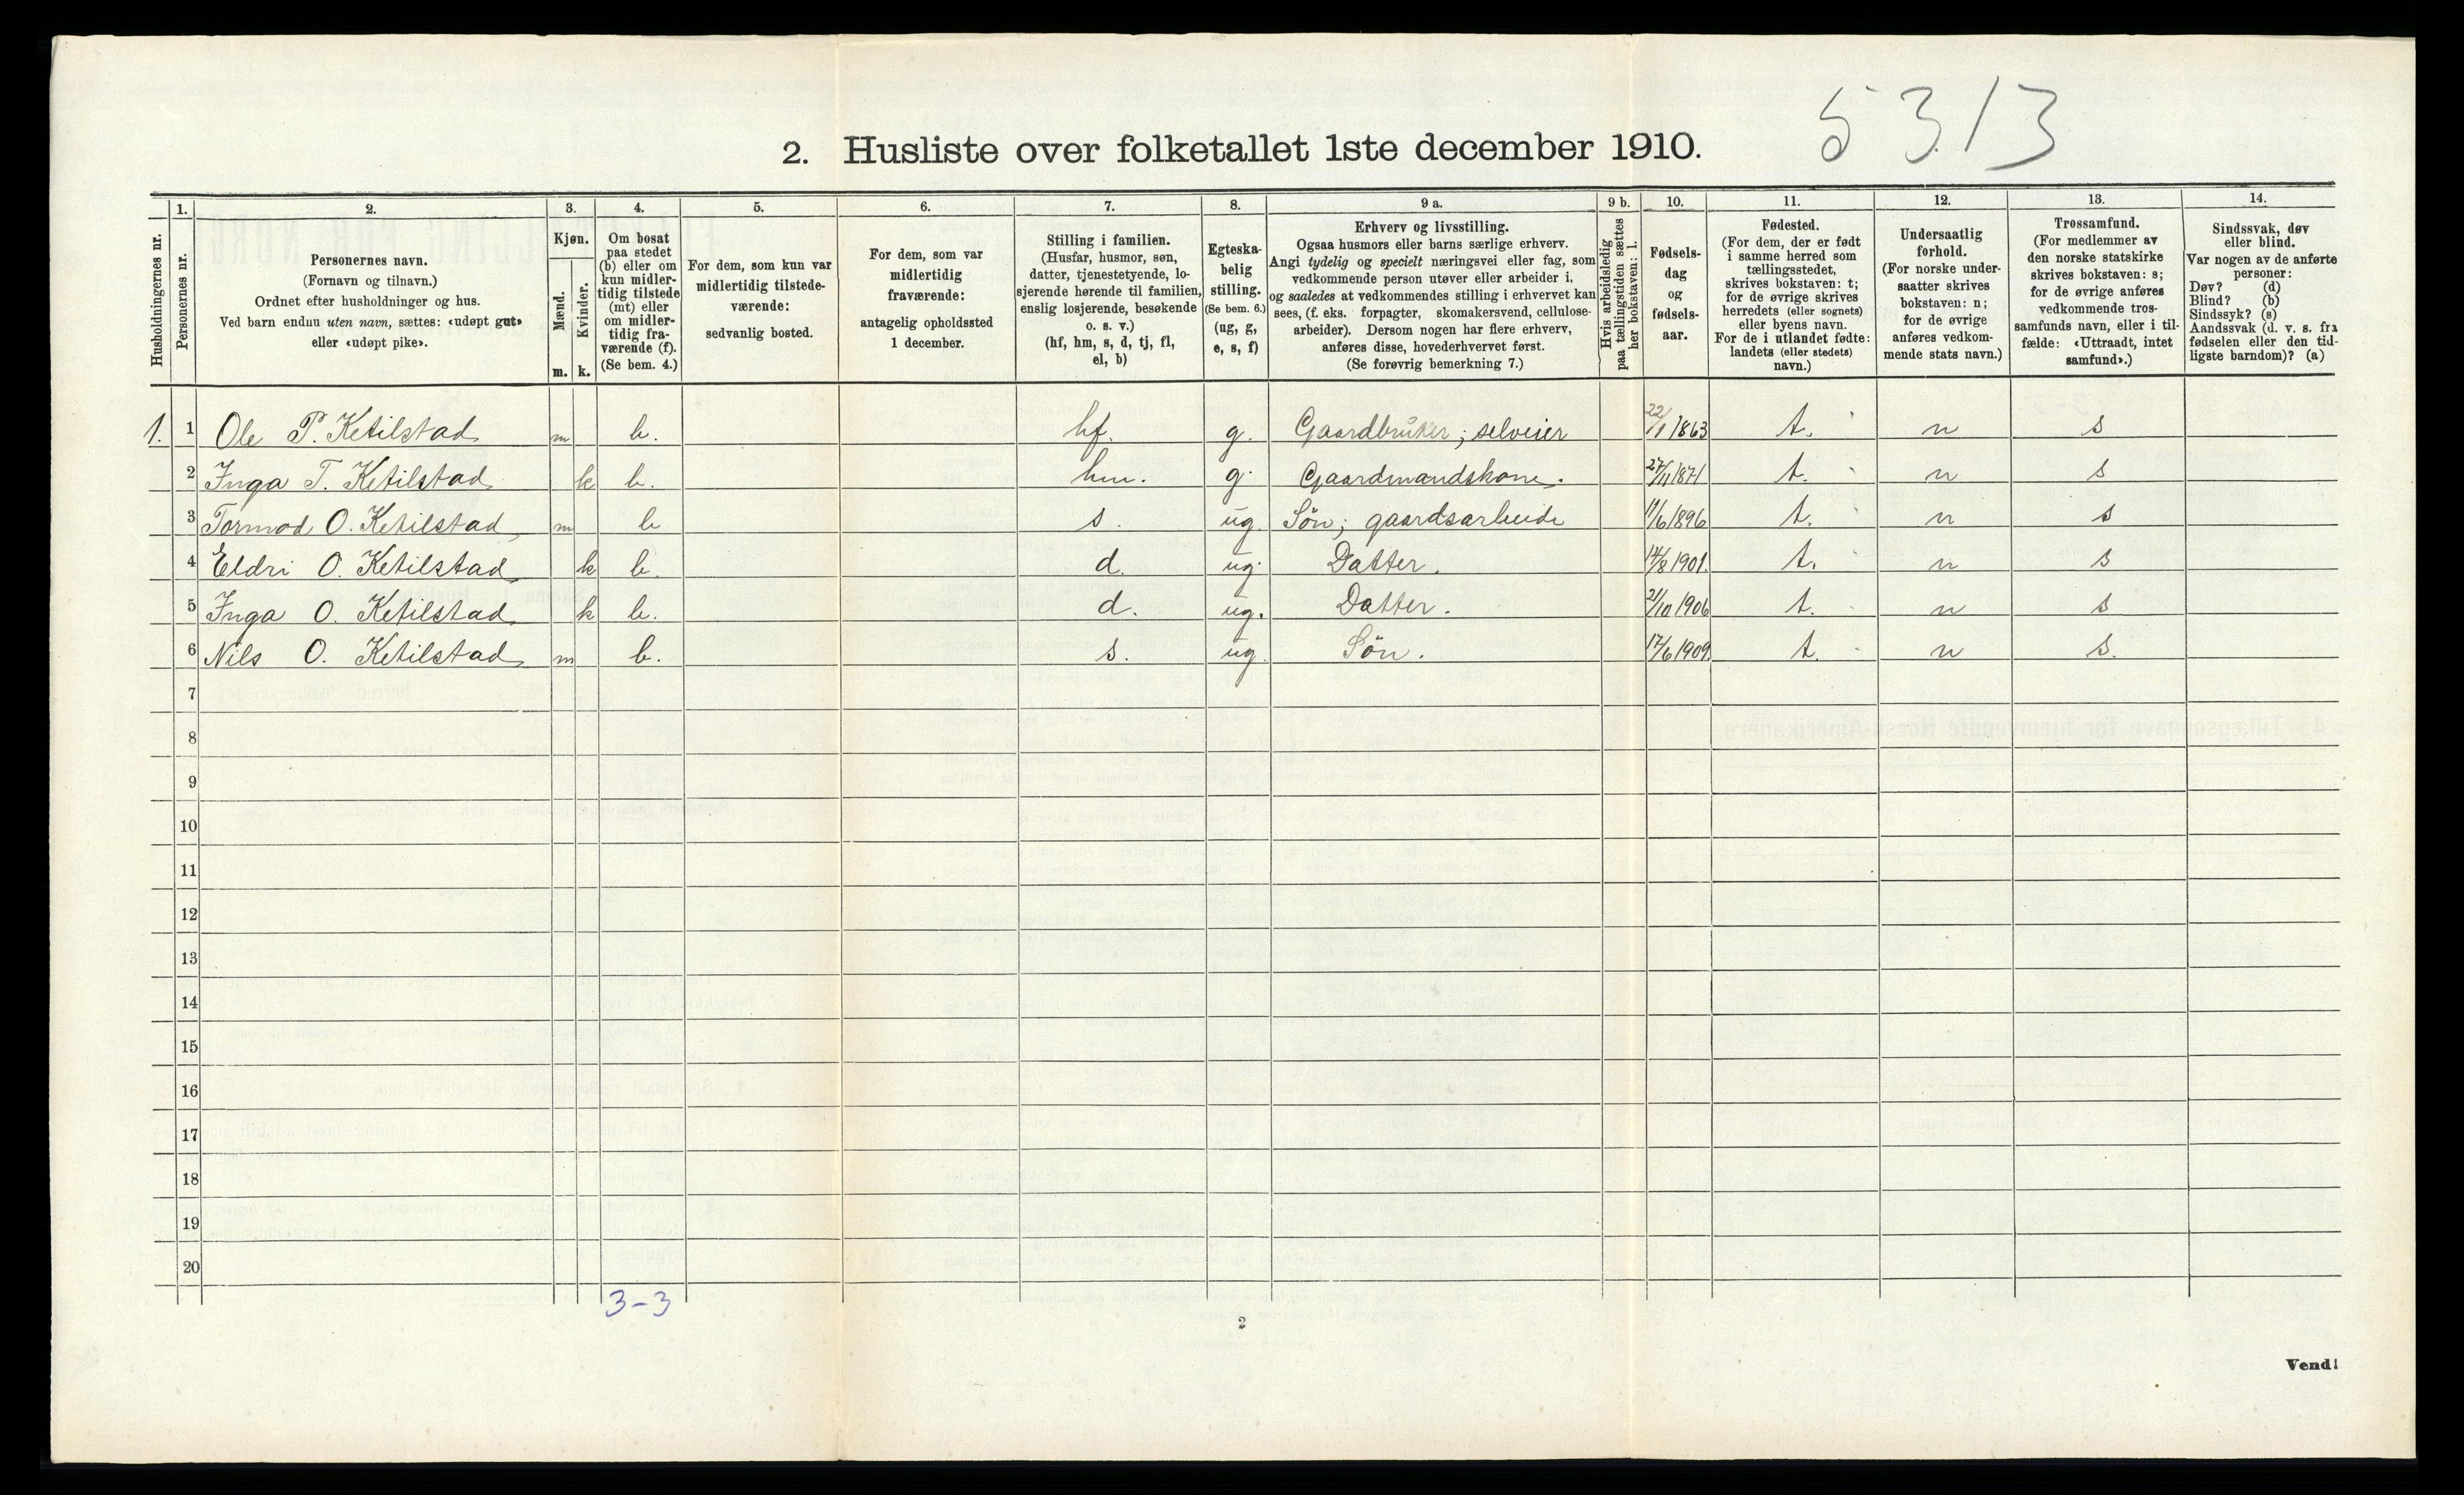 5313
2. Husliste over folketallet 1ste december 1910.
Husholdningernes nr.
1.
Personernes nr.
2.
Personernes navn.
(Fornavn og tilnavn.)
Ordnet efter husholdninger og hus.
Ved barn endnu uten navn, sættes: «udøpt gut»
eller «udøpt pike».
3.
Kjøn.
Mænd.
Kvinder.
m. k.
4.
Om bosat
paa stedet
(b) eller om
kun midler-
tidig tilstede
(mt) eller
om midler-
tidig fra-
værende (f).
(Se bem. 4.)
5.
For dem, som kun var
midlertidig tilstede-
værende:
sedvanlig bosted.
6.
For dem, som var
midlertidig
fraværende:
antagelig opholdssted
1 december.
7.
Stilling i familien.
(Husfar, husmor, søn,
datter, tjenestetyende, lo-
sjerende hørende til familien,
enslig losjerende, besøkende
o. s. v.)
(hf, hm, s, d, tj, fl,
el, b)
8.
Egteska-
belig
stilling.
(Se bem. 6.)
(ug, g,
e, s, f)
9 a.
Erhverv og livsstilling.
Ogsaa husmors eller barns særlige erhverv.
Angi tydelig og specielt næringsvei eller fag, som
vedkommende person utøver eller arbeider i,
og saaledes at vedkommendes stilling i erhvervet kan
sees, (f. eks. forpagter, skomakersvend, cellulose-
arbeider). Dersom nogen har flere erhverv,
anføres disse, hovederhvervet først.
(Se forøvrig bemerkning 7.)
9 b.
Hvis arbeidsledig
paa tællingstiden sættes
her bokstaven: l.
10.
Fødsels-
dag
og
fødsels-
aar.
11.
Fødested.
(For dem, der er født
i samme herred som
tællingsstedet,
skrives bokstaven: t;
for de øvrige skrives
herredets (eller sognets)
eller byens navn.
For de i utlandet fødte:
landets (eller stedets)
navn.)
12.
Undersaatlig
forhold.
(For norske under-
saatter skrives
bokstaven: n;
for de øvrige
anføres vedkom-
mende stats navn.)
13.
Trossamfund.
(For medlemmer av
den norske statskirke
skrives bokstaven: s;
for de øvrige anføres
vedkommende tros-
samfunds navn, eller i til-
fælde: «Uttraadt, intet
samfund».)
14.
Sindssvak, døv
eller blind.
Var nogen av de anførte
personer:
Døv? (d)
Blind? (b)
Sindssyk? (s)
Aandssvak (d. v. s. fra
fødselen eller den tid-
ligste barndom)? (a)
1. 1 Ole P. Ketilstad m b. hf. g. Gaardbruker; selveier 22/1 1863 t. n s
2 Inga T. Ketilstad k b. hm. g. Gaardmandskone. 27/11 1871 t. n s
3 Tormod O. Ketilstad m b s. ug. Søn; gaardsarbeide 11/6 1896 t. n s
4 Eldri O. Ketilstad k b. d. ug. Datter. 14/8 1901. t. n s
5 Inga O. Ketilstad k b. d. ug. Datter. 21/10 1906 t. n s
6 Nils O. Ketilstad m b. s. ug. Søn. 17/6 1909. t. n s.
7
8
9
10
11
12
13
14
15
16
17
18
19
20
3-3
2
Vend!